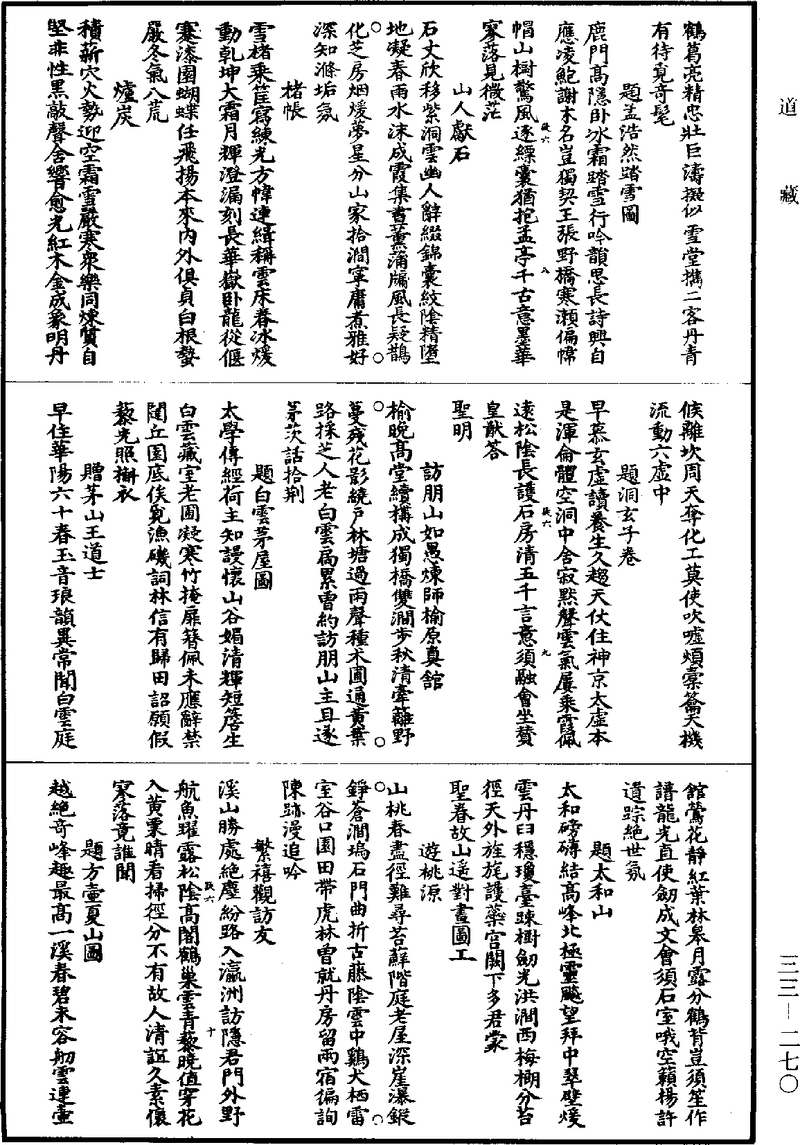 道藏
鶴葛亮精忠壯巨濤擬似雪堂攜二客丹青
有待竟奇髦
題孟浩然踏雪圖
鹿門高隱卧冰霜踏雪行吟韻思長詩興自
應凌鮑謝末名豈獨契王張野橋寒瀨偏幘
帽山樹驚風逐縹囊猶抱孟亭千古意墨華
寥落見微茫
山人獻石
石丈欣移紫洞雲幽人辭綴錦囊紋陰精墮
地凝春雨水沫成霞集書薰蒲牖風長疑鵲
化芝房烟煖夢星分山家拾澗寧庸煮雅好
深知滌垢氛
楮帳
雪楮乘筐寫練光方幃連緝稱雲床春冰煖
動乾坤大霜月輝澄漏刻長華嶽卧龍從偃
蹇漆園蝴蝶任飛揚本來內外俱貞白根蟄
嚴冬氣八荒
爐炭
積薪穴火勢迎空霜雪嚴寒衆樂同煉質自
堅非性黑敲聲含響愈光紅木金成象明丹
候離坎周天奪化工莫使吹噓煩橐籥天機
流動六虛中
題洞玄子卷
早慕玄虛讀養生久趨天仗住神京太虛本
是渾侖體空洞中含寂默聲雲氣屢乘霞佩
遠松陰長護石房清五千言意須融會坐贊
皇猷答
聖明
訪朋山如愚煉師榆原真館
榆晚高堂續構成獨橋雙澗步秋清牽籬野
蔓殘花影繞戶林塘過雨聲種术圃通黃葉
路採芝人老白雲扃累曾約訪朋山主且遂
茅茨話拾荆
題白雲茅屋圖
太學傳經荷主知謾懷山谷媚清輝短簷生
白雲藏室老圃凝寒竹掩扉簪佩未應辭禁
闥丘園底俟覓漁磯詞林信有歸田詔願假
藜光照槲衣
贈茅山王道士
早住華陽六十春玉音琅韻異常聞白雲庭
館鶯花靜紅葉林皋月露分鶴背豈須笙作
譜龍光直使劒成文會須石室哦空籟楊許
遺踪絕世氛
題太和山
太和磅礴結高峰北極靈颷望拜中翠壁煖
雲丹臼穩瓊臺踈樹劒光洪澗西梅棚分苔
徑天外旌旄護藥宫闕下多君裳
聖春故山遥對畫圖工
遊桃源
山桃春盡徑難尋苔蘚階庭老屋深崖瀑鍛
錚蒼澗塢石門曲折古藤陰雲中鷄犬栖雷
室谷口園田帶虎林曾就丹房留兩宿偏詢
陳跡漫追吟
繁禧觀訪友
溪山勝處絕塵紛路入瀛洲訪隱君門外野
航魚躍露松陰高閣鶴巢雲青藜曉值穿花
入黄粟晴看掃徑分不有故人清誼久素懷
寥落竟誰聞
題方壺夏山圖
越絕奇峰趣最高一溪春碧未容舠雲連壷
三三—二七〇